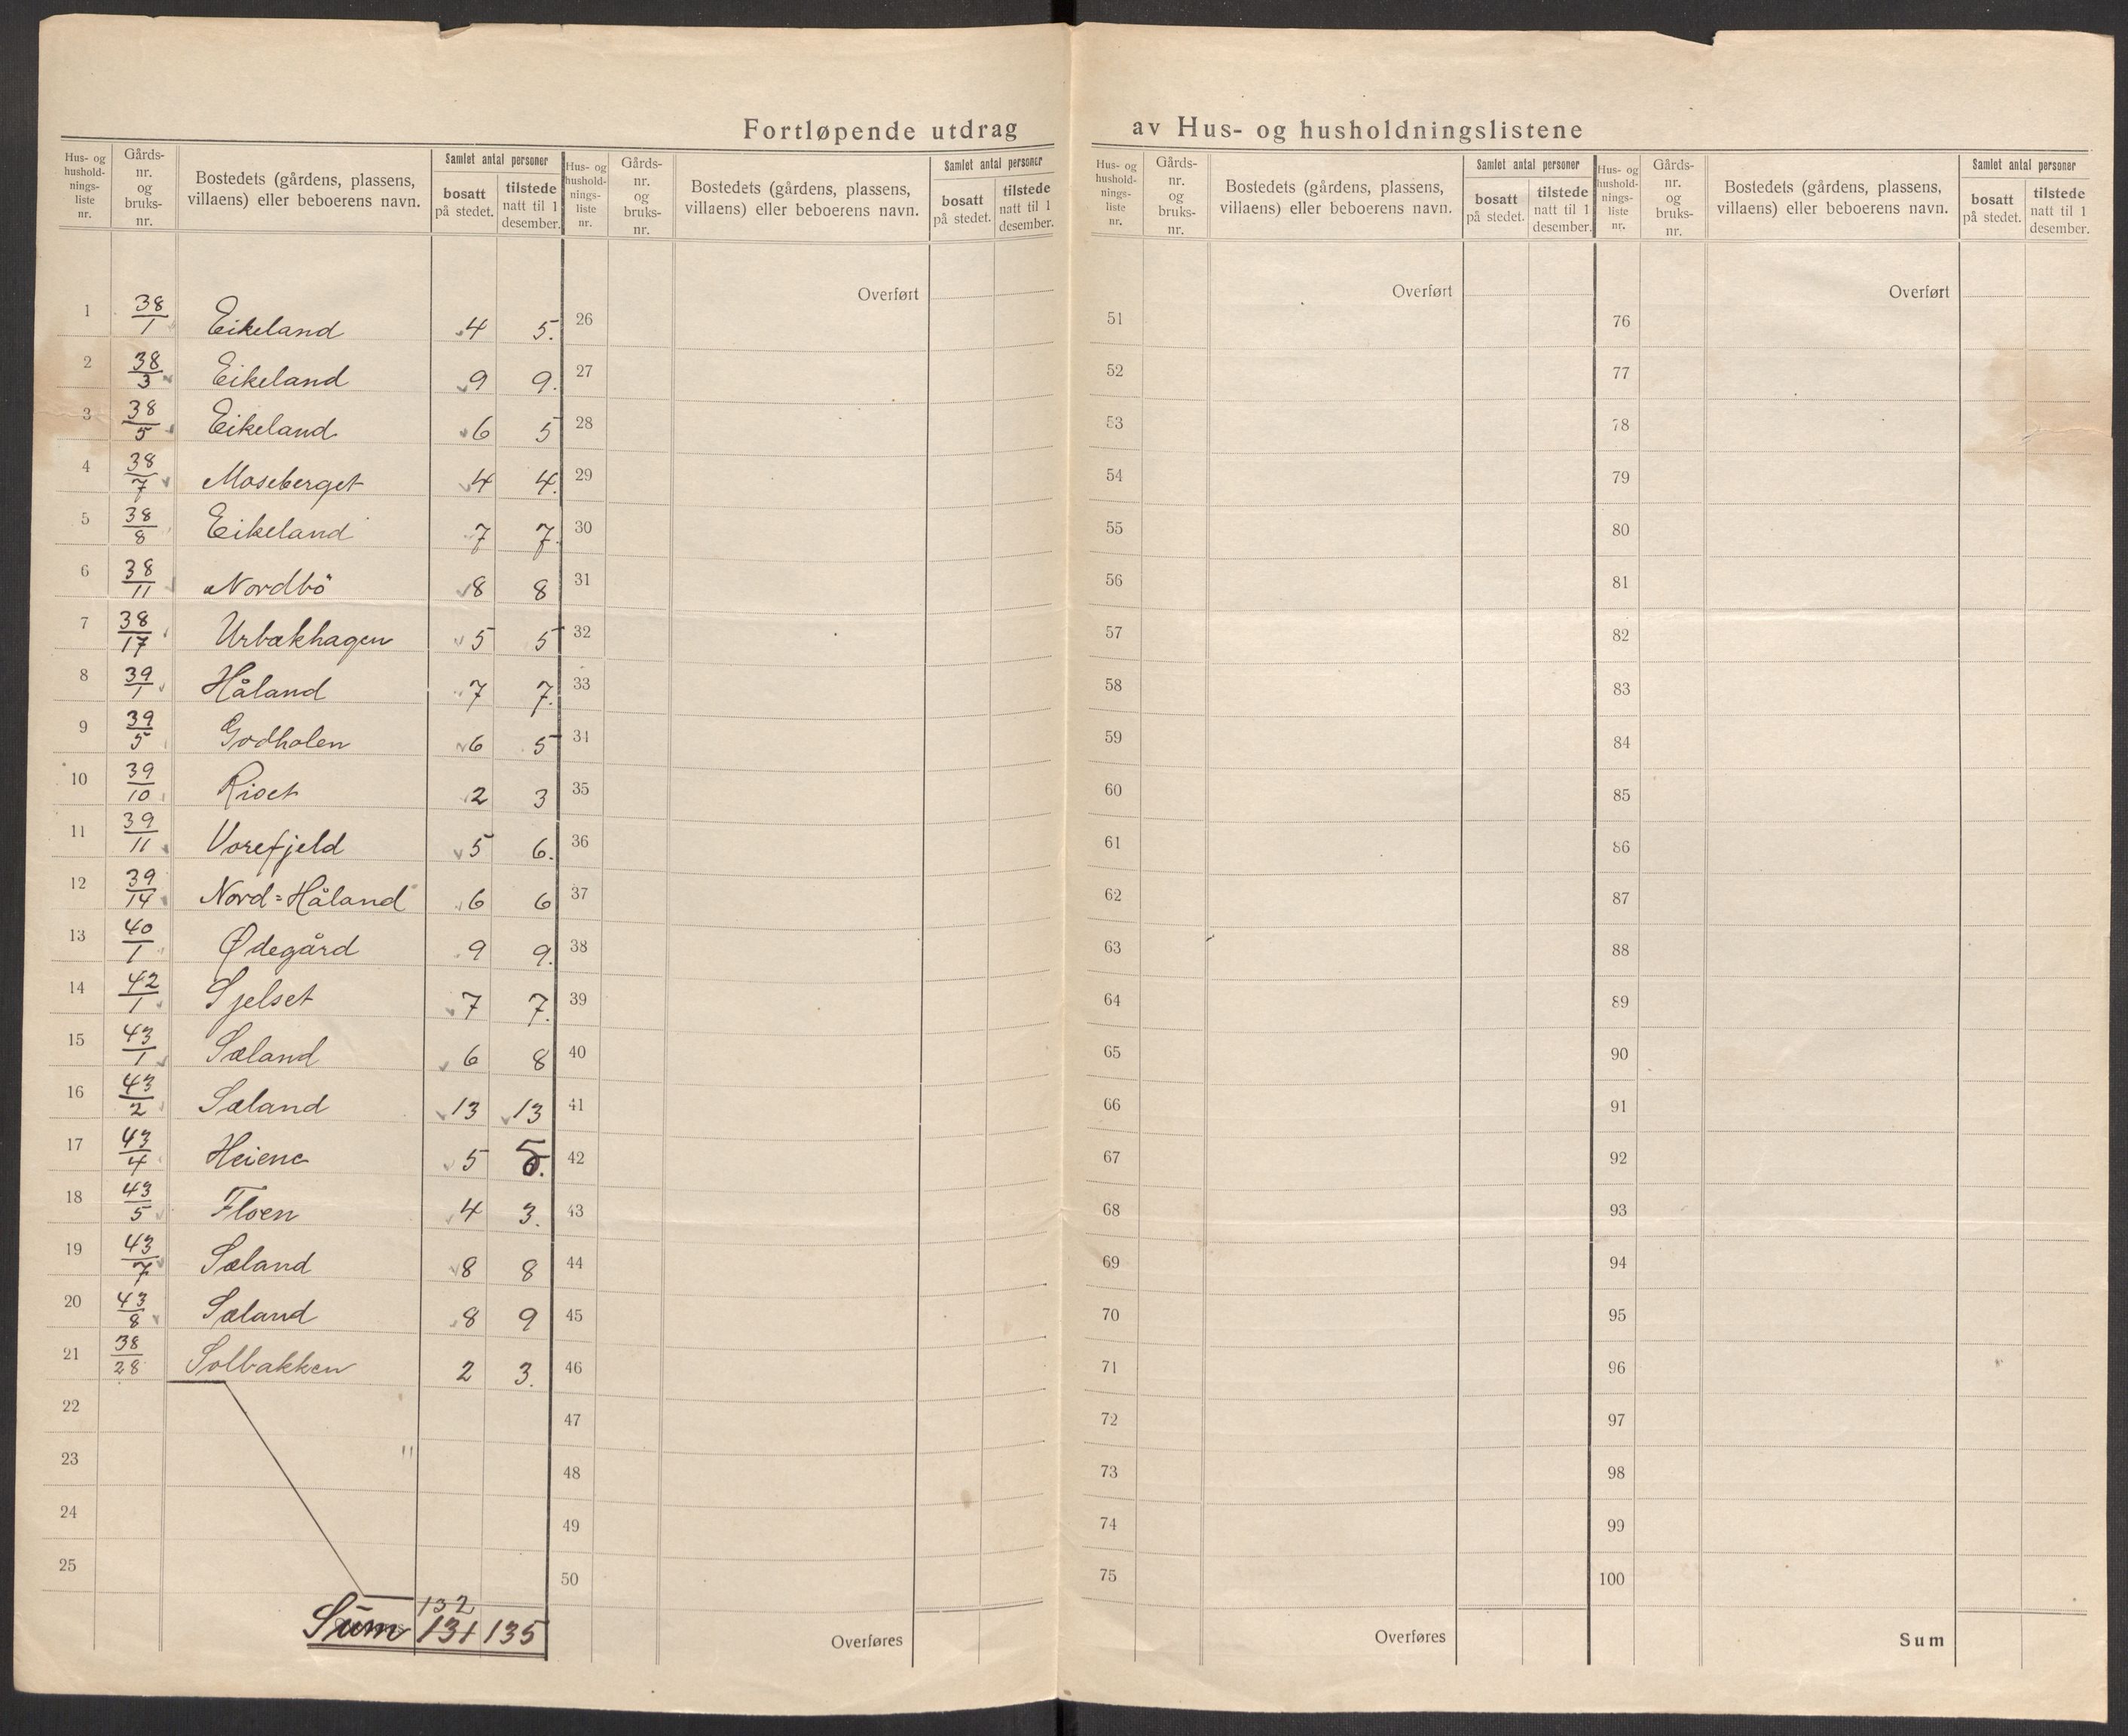 Fortløpende utdrag av Hus- og husholdningslistene
Hus- og hushold-nings-liste nr. | Gårds-nr. og bruks-nr. | Bostedets (gårdens, plassens, villaens) eller beboerens navn. | Samlet antal personer | bosatt på stedet. | tilstede natt til 1 desember.
Hus- og hushold-nings-liste nr. | Gårds-nr. og bruks-nr. | Bostedets (gårdens, plassens, villaens) eller beboerens navn. | Samlet antal personer | bosatt på stedet. | tilstede natt til 1 desember.
Hus- og hushold-nings-liste nr. | Gårds-nr. og bruks-nr. | Bostedets (gårdens, plassens, villaens) eller beboerens navn. | Samlet antal personer | bosatt på stedet. | tilstede natt til 1 desember.
Hus- og hushold-nings-liste nr. | Gårds-nr. og bruks-nr. | Bostedets (gårdens, plassens, villaens) eller beboerens navn. | Samlet antal personer | bosatt på stedet. | tilstede natt til 1 desember.
1 38/1 Eikeland 4 5.
2 38/3 Eikeland 9 9.
3 38/5 Eikeland 6 5
4 38/7 Moseberget 4 4.
5 38/8 Eikeland 7 7.
6 38/11 Nordbö 8 8
7 38/17 Urbækhagen 5 5
8 39/1 Håland 7 7.
9 39/5 Godholen 6 5
10 39/10 Riset 2 3
11 39/11 Vorefjeld 5 6.
12 39/14 Nord=Håland 6 6
13 40/1 Ødegård 9 9.
14 42/1 Sjelset 7 7.
15 43/1 Sæland 6 8
16 43/2 Sæland 13 13
17 43/4 Heiene 5 5.
18 43/5 Floen 4 3.
19 43/7 Sæland 8 8
20 43/8 Sæland 8 9
21 38/28 Solbakken 2 3.
22
23 "
24
25
132
Sum 131 135
Overført
26
27
28
29
30
31
32
33
34
35
36
37
38
39
40
41
42
43
44
45
46
47
48
49
50
Overføres
Overført
51
52
53
54
55
56
57
58
59
60
61
62
63
64
65
66
67
68
69
70
71
72
73
74
75
Overføres
Overført
76
77
78
79
80
81
82
83
84
85
86
87
88
89
90
91
92
93
94
95
96
97
98
99
100
Sum